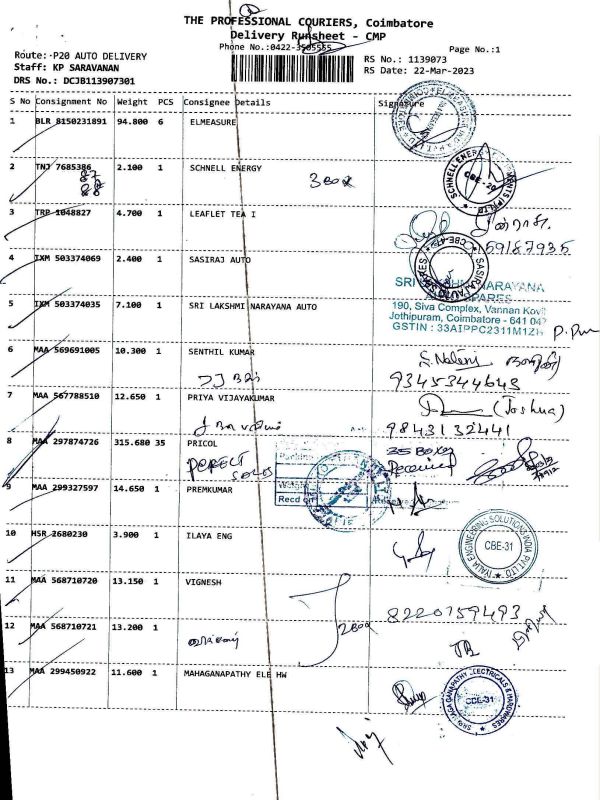 THE PROFESSIONAL COURIERS, Coimbatore
Delivery Runsheet - CMP
Phone No.:0422-3505555
Page No.:1
Route: P20 AUTO DELIVERY
Staff: KP SARAVANAN
DRS No.: DCJB113907301
RS No.: 1139073
RS Date: 22-Mar-2023
S No Consignment No Weight PCS Consignee Details Signature
1 BLR 8150231891 94.800 6 ELMEASURE
2 TNJ 7685386 2.100 1 SCHNELL ENERGY
87
88
3 Box
SCHNELL ENERGY
CBE-20
3 TRP 1048827 4.700 1 LEAFLET TEA I
4 IXM 503374069 2.400 1 SASIRAJ AUTO
SASIRAJ AUTO
5 IXM 503374035 7.100 1 SRI LAKSHMI NARAYANA AUTO
SRI LAKSHMI NARAYANA
SPARES
190, Siva Complex, Vannan Kovil
Jothipuram, Coimbatore - 641 047
GSTIN : 33AIPPC2311M1ZH
6 MAA 569691005 10.300 1 SENTHIL KUMAR
9345344643
7 MAA 567788510 12.650 1 PRIYA VIJAYAKUMAR
(Joshua)
9843132441
8 MAA 297874726 315.680 35 PRICOL
35 Boxes
Received
Recd on
9 MAA 299327597 14.650 1 PREMKUMAR
10 HSR 2680230 3.900 1 ILAYA ENG
IYALIA ENGINEERING SOLUTIONS INDIA PVT LTD
CBE-31
11 MAA 568710720 13.150 1 VIGNESH
2 Box
8220759493
12 MAA 568710721 13.200 1
13 MAA 299450922 11.600 1 MAHAGANAPATHY ELE HW
CBE-31